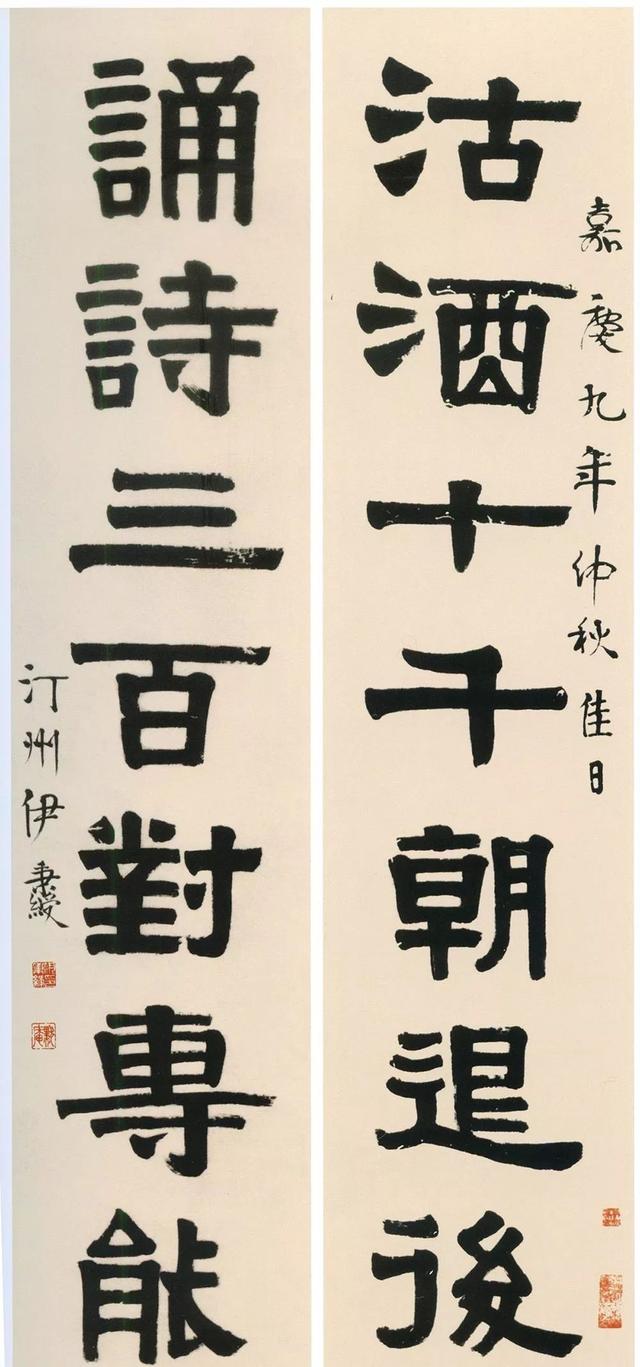 嘉慶九年仲秋佳日
沽酒十千朝退後
誦詩三百對專能
汀州伊秉綬